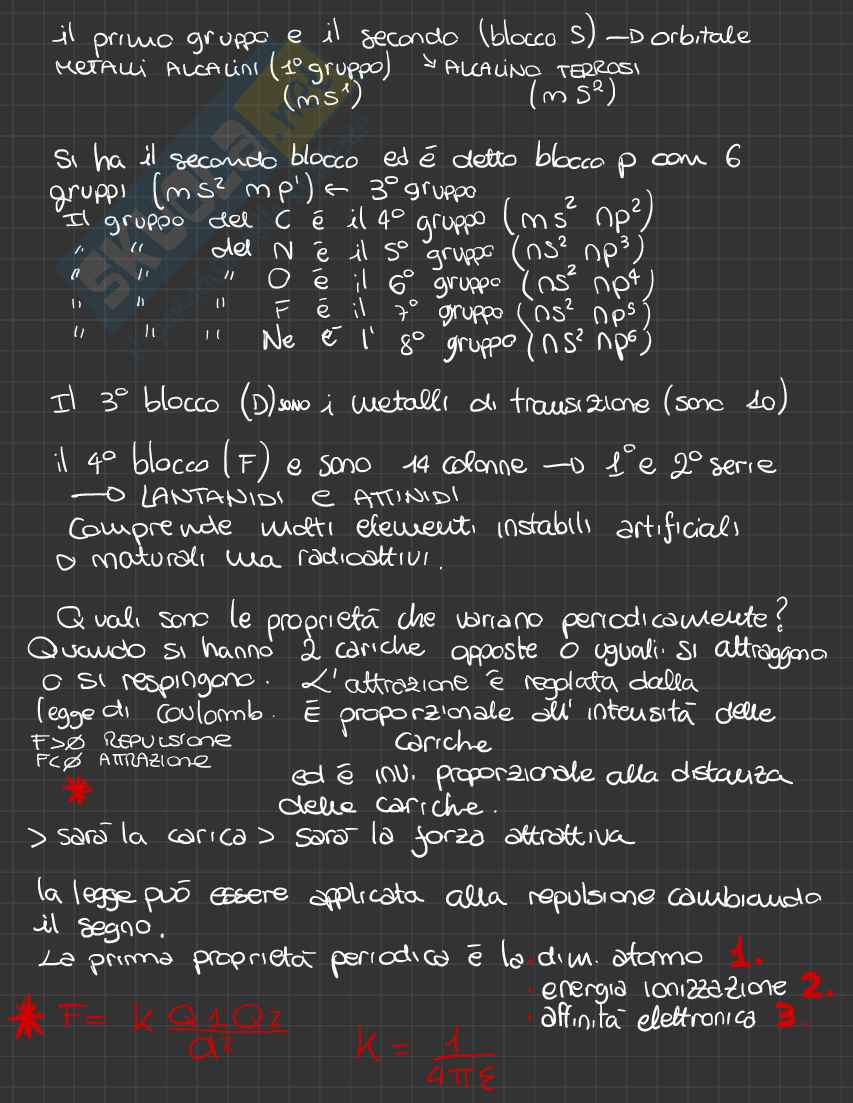 il primo gruppo e il secondo (blocco S) → orbitale
METALLI ALCALINI (1° gruppo) ↘ ALCALINO TERROSI
(ms¹) (ms²)
Si ha il secondo blocco ed é detto blocco p com 6
gruppi (ms² mp¹) ← 3° gruppo
Il gruppo del C é il 4° gruppo (ms² np²)
" " del N é il 5° gruppo (ns² np³)
" " " O é il 6° gruppo (ns² np⁴)
" " " F é il 7° gruppo (ns² np⁵)
" " " Ne é l' 8° gruppo (ns² np⁶)
Il 3° blocco (D) sono i metalli di transizione (sono 10)
il 4° blocco (F) e sono 14 colonne → 1° e 2° serie
→ LANTANIDI e ATTINIDI
Comprende molti elementi instabili artificiali
o naturali ma radioattivi.
Quali sono le proprietà che variano periodicamente?
Quando si hanno 2 cariche opposte o uguali si attraggono
o si respingono. L'attrazione é regolata dalla
legge di Coulomb. É proporzionale all'intensità delle
F>0 REPULSIONE cariche
F<0 ATTRAZIONE
ed é inv. proporzionale alla distanza
* delle cariche.
> sarà la carica > sarà la forza attrattiva
la legge può essere applicata alla repulsione cambiando
il segno.
La prima proprietà periodica é la · dim. atomo 1.
· energia ionizzazione 2.
· affinità elettronica 3.
* F = k Q1Q2/d²
K = 1/4πε
SKUOLA.net